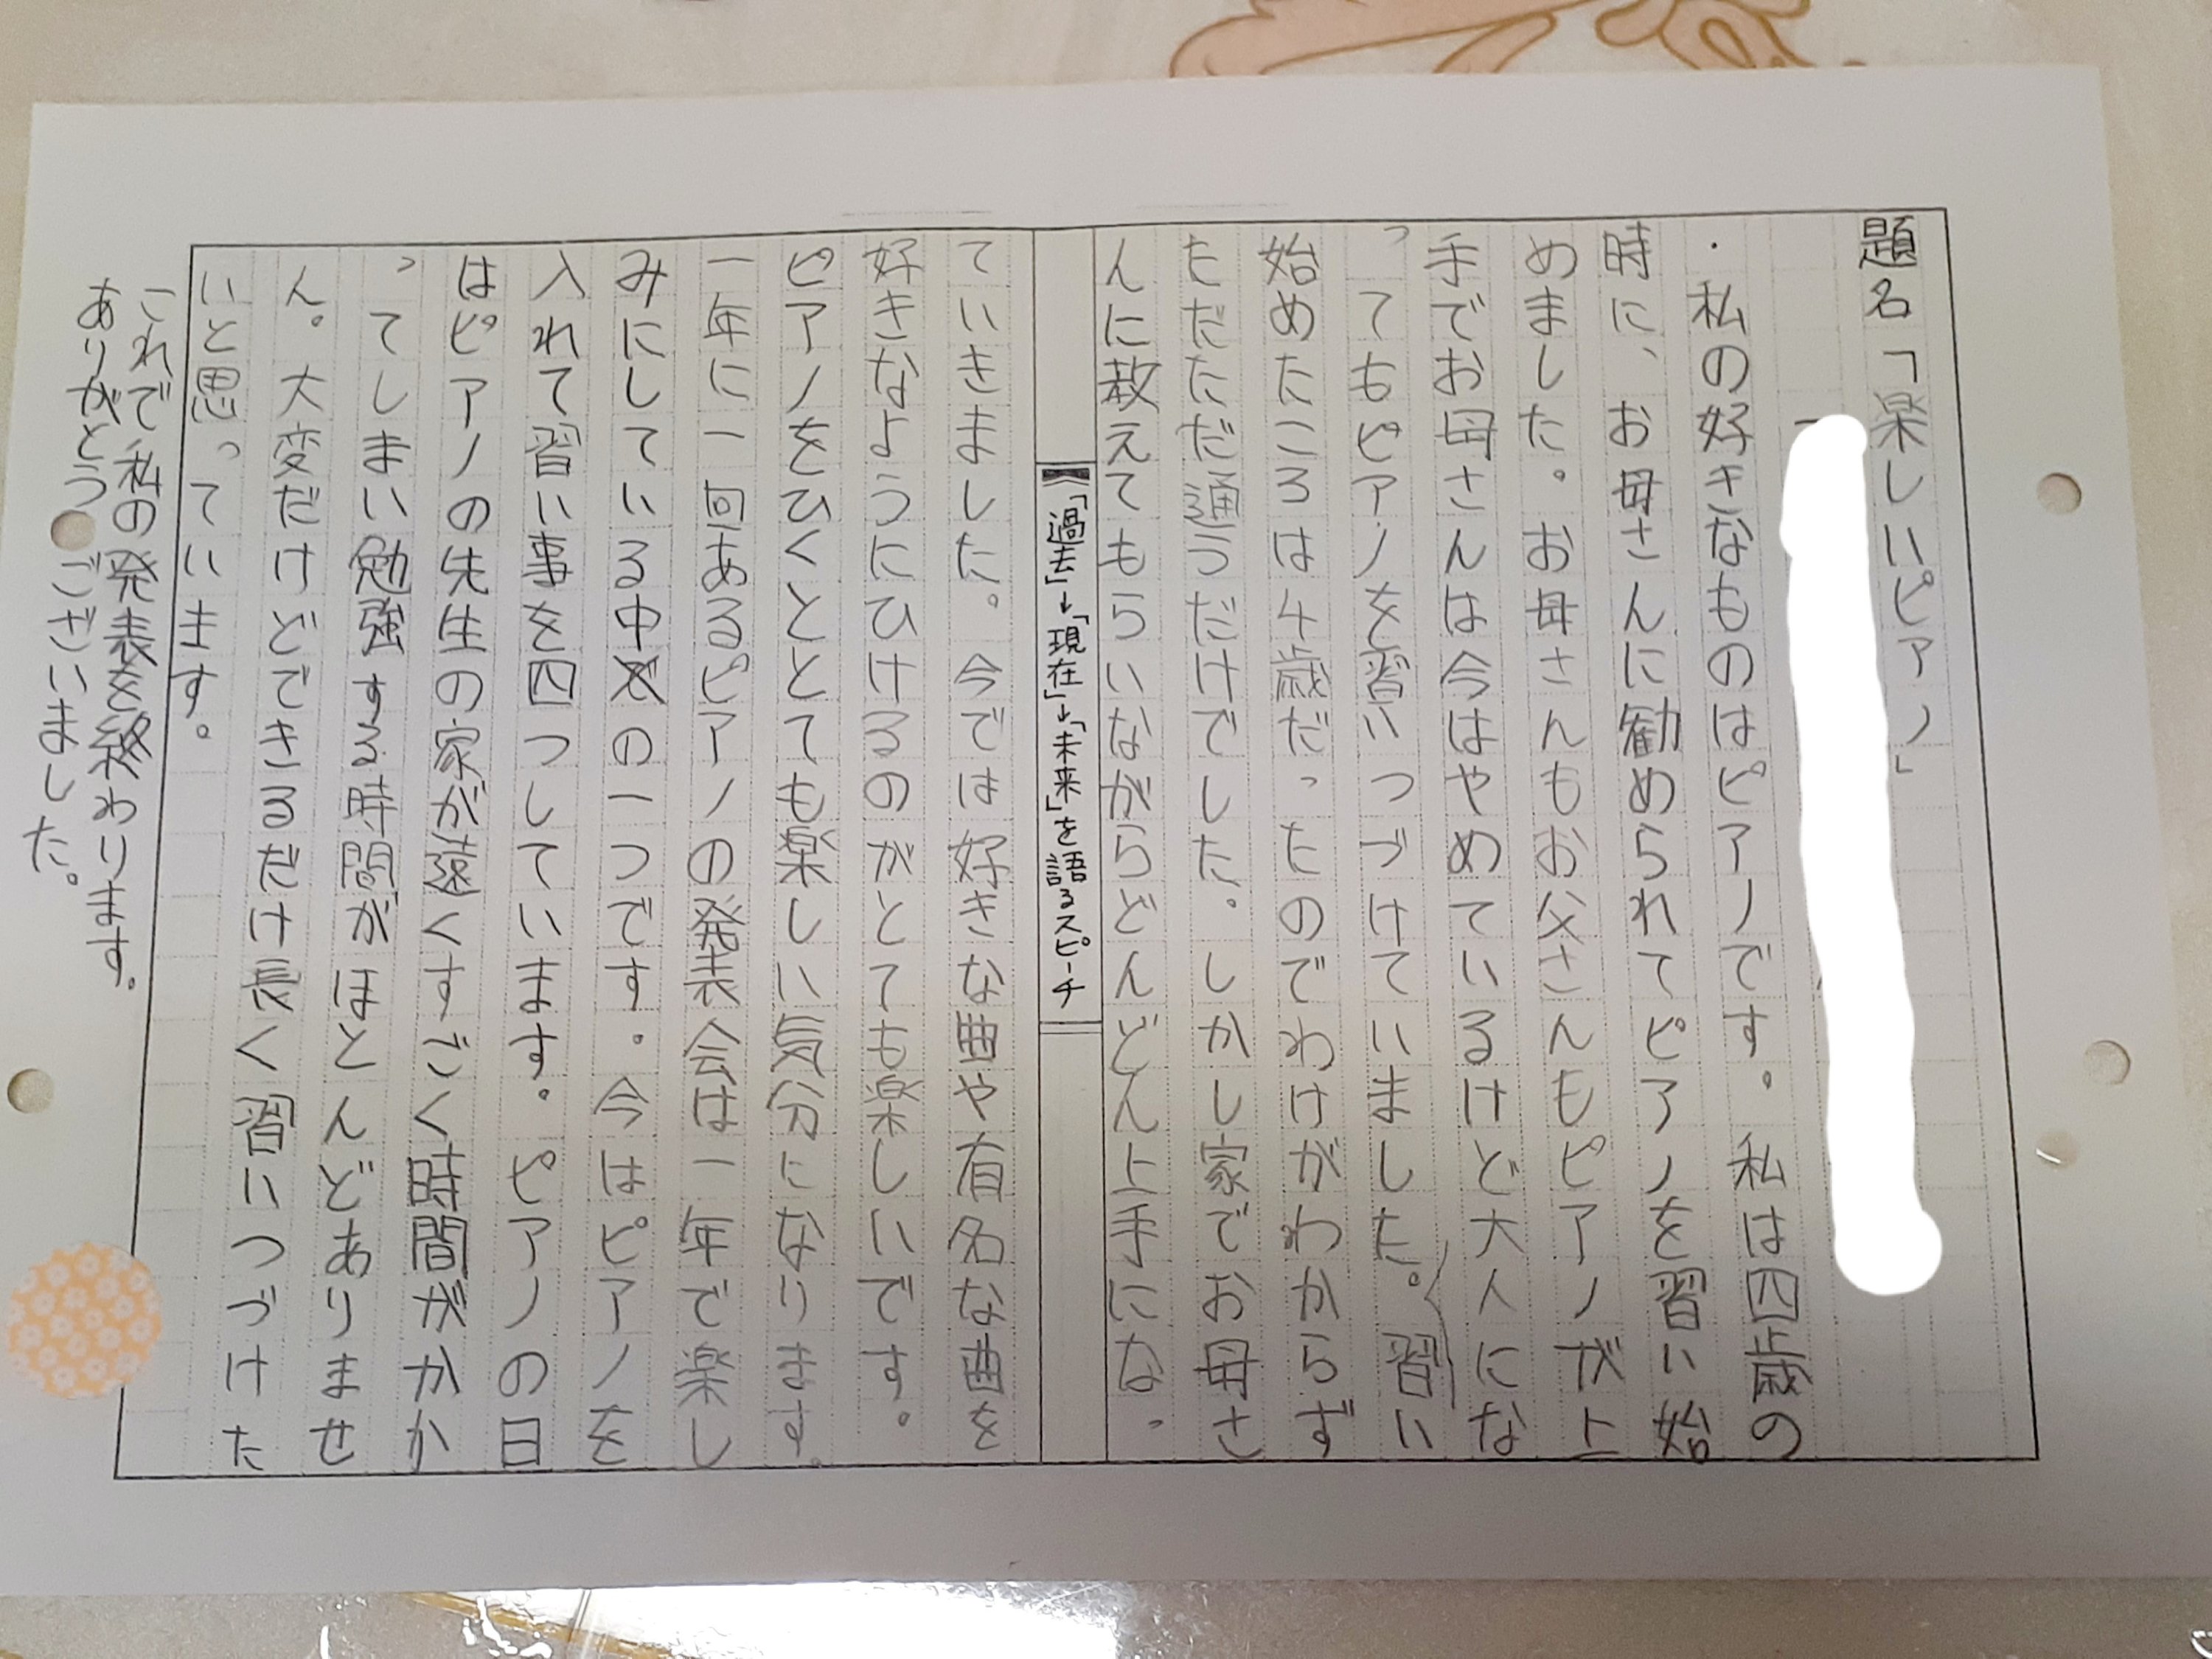 題名「楽しいピアノ」
・私の好きなものはピアノです。私は四歳の
時に、お母さんに勧められてピアノを習い始
めました。お母さんもお父さんもピアノが上
手でお母さんは今はやめているけど大人にな
ってもピアノを習いつづけていました。習い
始めたころは4歳だったのでわけがわからず
ただただ通うだけでした。しかし家でお母さ
んに教えてもらいながらどんどん上手になっ
【「過去」→「現在」→「未来」を語るスピーチ
ていきました。今では好きな曲や有名な曲を
好きなようにひけるのがとても楽しいです。
ピアノをひくととても楽しい気分になります。
一年に一回あるピアノの発表会は一年で楽し
みにしている中の一つです。今はピアノを
入れて習い事を四つしています。ピアノの日
はピアノの先生の家が遠くすごく時間がかか
ってしまい勉強する時間がほとんどありませ
ん。大変だけどできるだけ長く習いつづけた
いと思っています。
これで私の発表を終わります。
ありがとうございました。